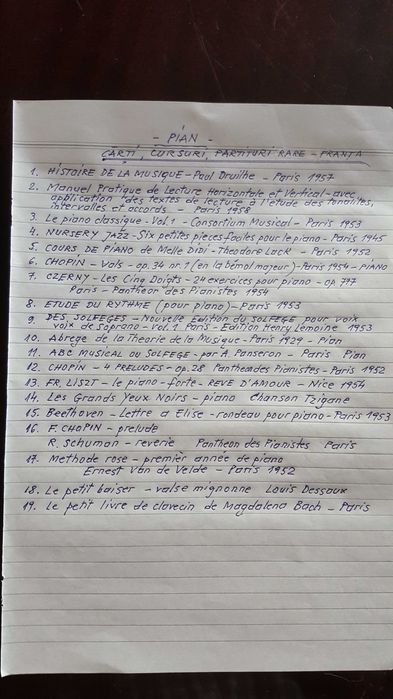 - PIAN -
CĂRȚI, CURSURI, PARTITURI RARE - FRANȚA
1. HISTOIRE DE LA MUSIQUE - Paul Druilhe - Paris 1957
2. Manuel Pratique de Lecture Horizontale et Vertical - avec
application des textes de lecture à l'étude des tonalités,
intervalles et accords - Paris 1958
3. Le piano classique - Vol 1 - Consortium Musical - Paris 1953
4. NURSERY JAZZ - Six petites pieces faciles pour le piano - Paris 1945
5. COURS DE PIANO de Melle Didi - Theodore Lack - Paris 1952
6. CHOPIN - Vals - op. 34 nr 1 (en la bémol majeur) - Paris 1954 - PIANO
7. CZERNY - Les Cinq Doigts - 24 exercices pour piano - op 777
Paris - Pantheor des Pianistes 1954
8. ETUDE DU RYTHME (pour piano) - Paris 1953
9. DES SOLFEGES - Nouvelle Edition du SOLFEGE pour voix
voix de soprano - vol. 1 Paris - Edition Henry Lemoine 1953
10. Abrege de la Theorie de la Musique - Paris 1929 - Pian
11. ABC MUSICAL OU SOLFEGE - par A. Panseron - Paris Pian
12. CHOPIN - 4 PRELUDES - op. 28 Pantheon des Pianistes - Paris 1952
13. FR. LISZT - le piano - forte - REVE D'AMOUR - Nice 1954
14. Les Grands Yeux Noirs - piano Chanson Tzigane
15. Beethoven - Lettre a Elise - rondeau pour piano - Paris 1953
16. F. CHOPIN - prelude
R. Schuman - reverie Pantheon des Pianistes Paris
17. Methode rose - premier année de piano
Ernest Van de Velde - Paris 1952
18. Le petit baiser - valse mignonne Louis Dessaux
19. Le petit livre de clavecin de Magdalena Bach - Paris